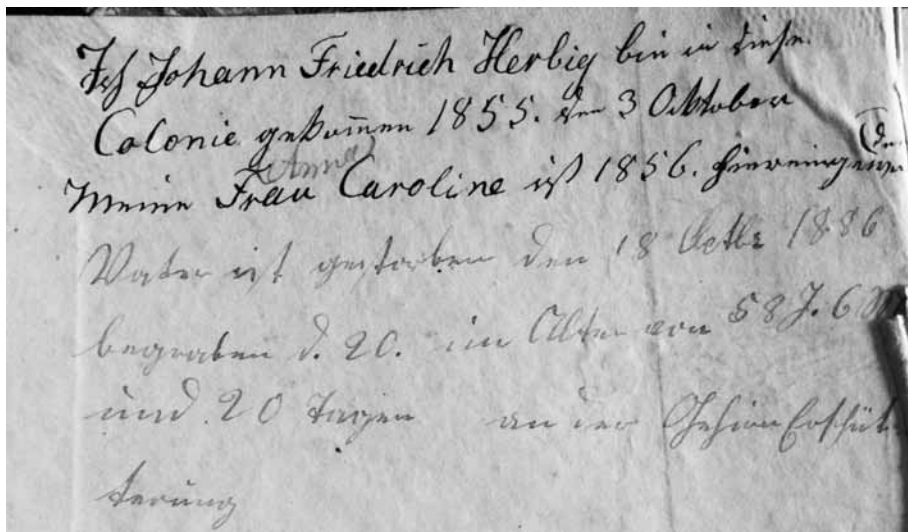 Ich Johann Friedrich Herbig bin in diese
Colonie gekommen 1855. den 3 Oktober
Anna
Meine Frau Caroline ist 1856. hierein
Vater ist gestorben den 18 Octbr 1886
begraben d. 20. im Alter von 58 J. 6 M
und 20 Tagen an der Gehirn Erschüt
terung